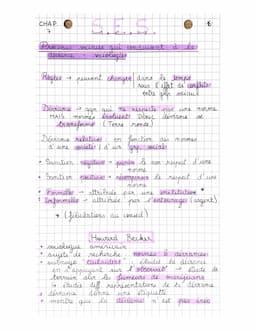 CHAP. 7
S E S
Processus sociaux qui conduisent à la
déviance sociologie
Règles → peuvent changer dans le temps
sous l'effet de conflits
entre grp sociaux
Déviance → qqn qui ne respecte pas une norme
mais normes évoluent Donc déviance se
transforme (Terre ronde)
Déviance relative en fonction des normes
d'une société / d'un grp social
• Sanction négative → punir le non respect d'une
norme
• Sanction positive → récompenser le respect d'une
norme
• Formelle → attribuée par une institution *
• Informelle → attribuée par l'entourage (argent)
* (félicitations au conseil)
Howard Becker
• sociologue américain
• sujets de recherche normes & déviances
• ouvrage Outsiders : étudie la déviance
en s'appuyant sur l'observat° → étude de
terrain chez les fumeurs de marijuana
→ étudie diff représentations de la déviance
• déviance donne une étiquette
• montre que la déviance n'est pas